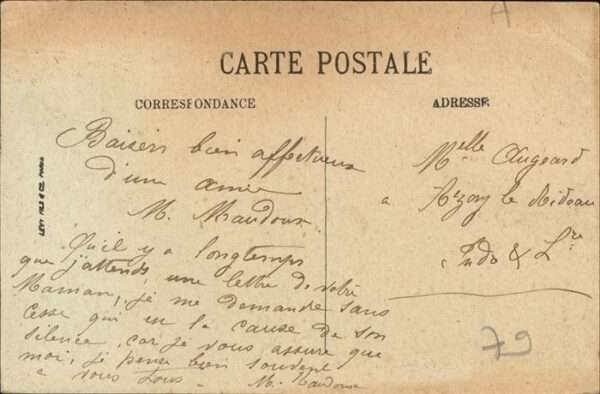 A
CARTE POSTALE
CORRESPONDANCE
ADRESSE
LÉVY FILS & CO. PARIS
Baisers bien affectueux
d'une amie
M. Maudoux
Qu'il y a longtemps
que j'attends, une lettre de votre
Maman, je me demande sans
cesse qui est la cause de son
silence, car je vous assure que
moi, je pense bien souvent
à vous tous. M. Maudoux
Melle Augeard
a Azay le Rideau
Indre & Lre
79